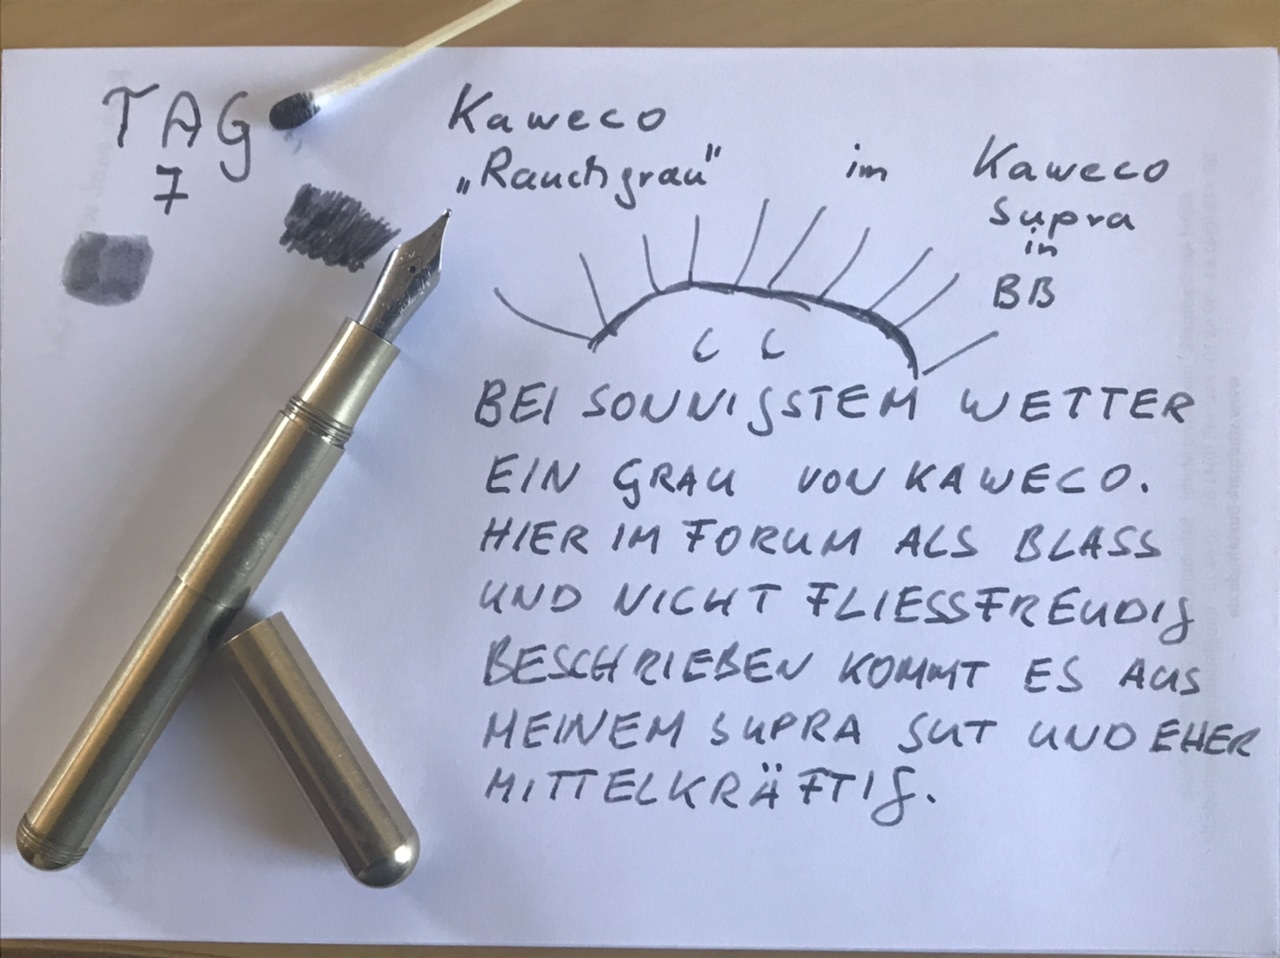 TAG
7
Kaweco
„Rauchgrau"
im
Kaweco
Supra
in
BB
BEI SONNIGSTEM WETTER
EIN GRAU VON KAWECO.
HIER IM FORUM ALS BLASS
UND NICHT FLIESSFREUDIG
BESCHRIEBEN KOMMT ES AUS
MEINEM SUPRA GUT UND EHER
MITTELKRÄFTIG.